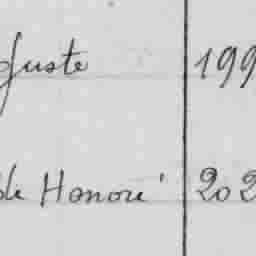 guste 199
de Honoré 202